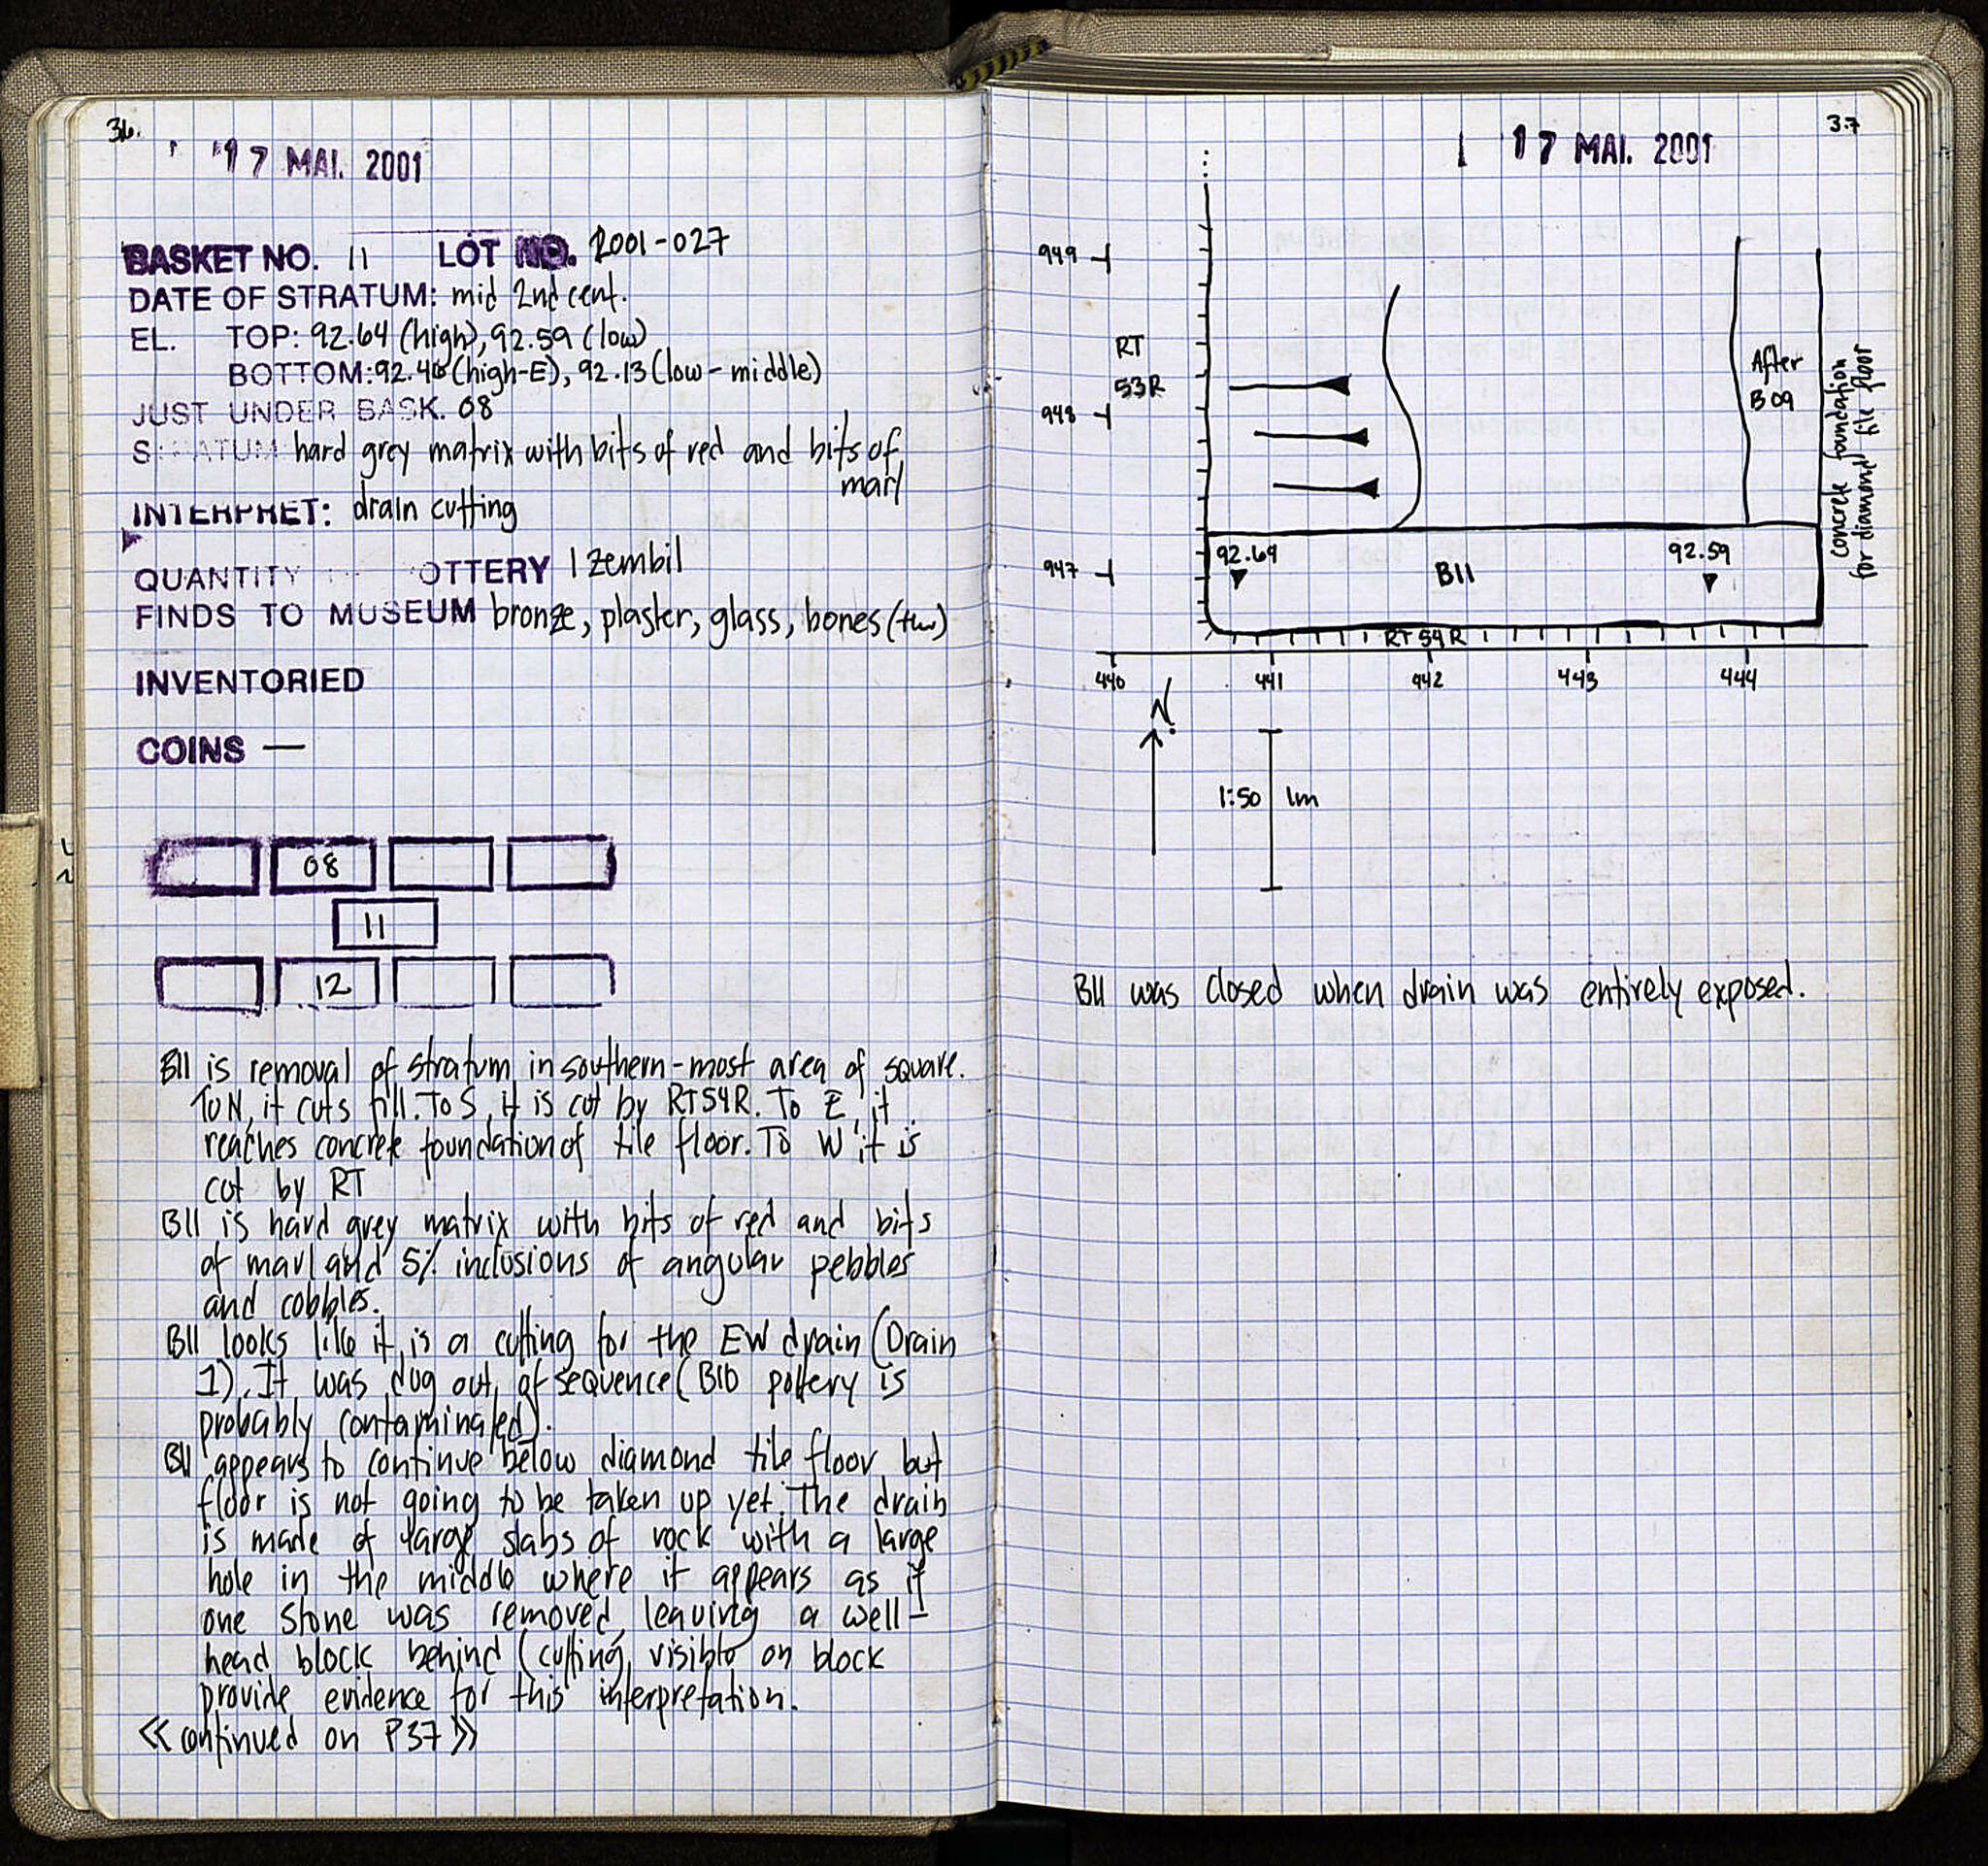 36.
17 MAI. 2001
BASKET NO. 11 LOT NO. 2001-027
DATE OF STRATUM: mid 2nd cent.
EL. TOP: 92.64 (high), 92.59 (low)
BOTTOM: 92.40 (high-E), 92.13 (low-middle)
JUST UNDER BASK. 08
STRATUM: hard grey matrix with bits of red and bits of
marl
INTERPRET: drain cutting
QUANTITY OTTERY 1 zembil
FINDS TO MUSEUM bronze, plaster, glass, bones (tw)
INVENTORIED
COINS —
08
11
12
B11 is removal of stratum in southern-most area of square.
To N, it cuts fill. To S, it is cut by RT54R. To E it
reaches concrete foundation of tile floor. To W it is
cut by RT
B11 is hard grey matrix with bits of red and bits
of marl and 5% inclusions of angular pebbles
and cobbles.
B11 looks like it is a cutting for the EW drain (Drain
1). It was dug out of sequence (B10 pottery is
probably contaminated).
B11 appears to continue below diamond tile floor but
floor is not going to be taken up yet. The drain
is made of large slabs of rock with a large
hole in the middle where it appears as if
one stone was removed, leaving a well-
head block behind (cutting visible on block
provide evidence for this interpretation.
<<continued on P37>>
37
17 MAI. 2001
949
RT
53R
948
947
After
B09
concrete foundation
for diamond tile floor
92.64
B11
92.59
RT 54R
440 441 442 443 444
N.
1:50 1m
B11 was closed when drain was entirely exposed.